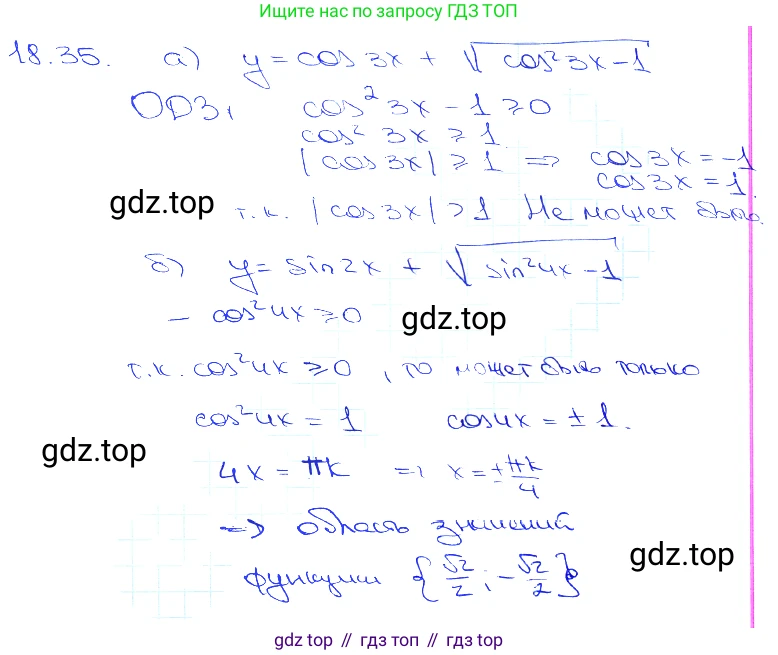 Ищите нас по запросу ГДЗ ТОП
18.35. а) y = cos 3x + √(cos²3x - 1)
ОДЗ, cos² 3x - 1 ≥ 0
cos² 3x ≥ 1
|cos 3x| ≥ 1 => cos 3x = -1
cos 3x = 1.
gdz.top
т.к. |cos 3x| > 1 Не может быть.
б) y = sin 2x + √(sin²4x - 1)
- cos²4x ≥ 0
gdz.top
т.к. cos²4x ≥ 0, то может быть только
cos²4x = 1 cos 4x = ± 1.
gdz.top
4x = πk => x = ± πk/4
=> область значений
gdz.top
функции {√2/2; -√2/2}
gdz top // гдз топ // gdz top